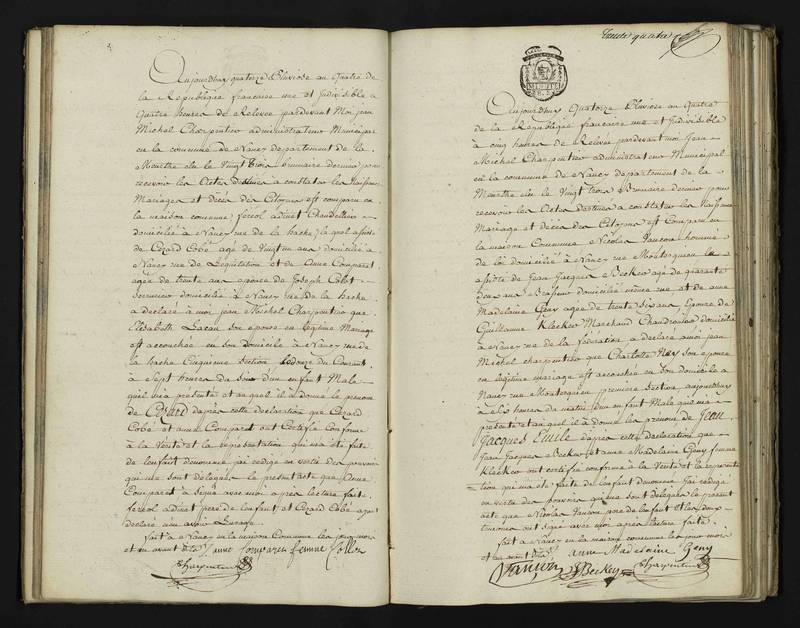 Aujourdhuy quatorze Pluviose an Quatre de
la Republique francaise une et Indivisible à
Quatre heures de Relevee pardevant Moi jean
Michel Charpentier administrateur Municipal
en la commune de Nancy departement de la
Meurthe élu le Vingt trois brumaire dernier pour
recevoir les Actes destinés a constater les Naissances
Mariages et décès des Citoyens est comparu en
la maison commune, ferreol adinet Chandellier
domicilié à Nancy rue de la hache, lequel assisté
de Cezard Cobé agé de Vingt un ans domicilié à
Nancy rue de Legalitation et de Anne Comparet
agée de trente ans epouse de Joseph Colot
Serrurier domiciliée à Nancy rue de la hache
a declaré à moi jean Michel Charpentier que
Elisabeth Lacou son epouse en legitime Mariage
est accouchée en son domicile à Nancy rue de
la hache Cinquieme Section le douze du Courant
à Sept heures du Soir d'un enfant Male
qu'il m'a présenté et auquel il a donné le prenom
de Cezard d'apres cette declaration que Cezard
Cobé et anne Comparet ont Certifié Conforme
à la Verité et la représentation qui m'a été faite
de l'enfant denommé j'ai rédigé en vertu des pouvoirs
qui me sont delegués le present acte que Anne
Comparet a Signé avec moi apres lecture faite
ferreol adinet pere de l'enfant et Cezard Cobé ayant
declaré n'en avoir l'usage
fait à Nancy en la maison Commune les jour mois
et an avant dits. anne Comparey femme Collot
Charpentier
trente quatre
Aujourdhuy Quatorze Pluviose an Quatre
de la Republique francaise une et Indivisible
à cinq heures de Relevee pardevant moi Jean
Michel Charpentier administrateur Municipal
en la commune de Nancy departement de la
Meurthe élu le Vingt trois Brumaire dernier pour
recevoir les Actes destinés a constater les Naissances
Mariage et décès des Citoyens est Comparu en
la maison Commune Nicolas Vautrin homme
de loi domicilié à Nancy rue Montesquieu
assisté de Jean Jacques Beckey agé de quarante
deux ans Brasseur domicilié même rue et de anne
Madelaine Geny agée de trente six ans Epouse de
Guillaume Klecker Marchand Chaudronnier domiciliée
à Nancy rue de la federation a declaré à moi jean
Michel charpentier que Charlotte Ney son epouse
en legitime mariage est accouchée en son domicile à
Nancy rue Montesquieu premiere Section aujourdhuy
à Six heures du matin d'un enfant Male qu'il m'a
présenté et auquel il a donné les prénoms de Jean
Jacques Emile d'apres cette declaration que
Jean Jacques Beckey et anne Madelaine Geny femme
Klecker ont certifié conforme à la Verité et la représentation
qui m'a été faite de l'enfant denommé J'ai rédigé
en vertu des pouvoirs qui me sont delegués le present
acte que Nicolas Vautrin pere de l'enfant et les deux
temoins ont signé avec moi apres lecture faite
fait à Nancy en la maison commune les jour mois
et an avant dits anne Madelaine Geny
Vautrin JJBeckey Charpentier